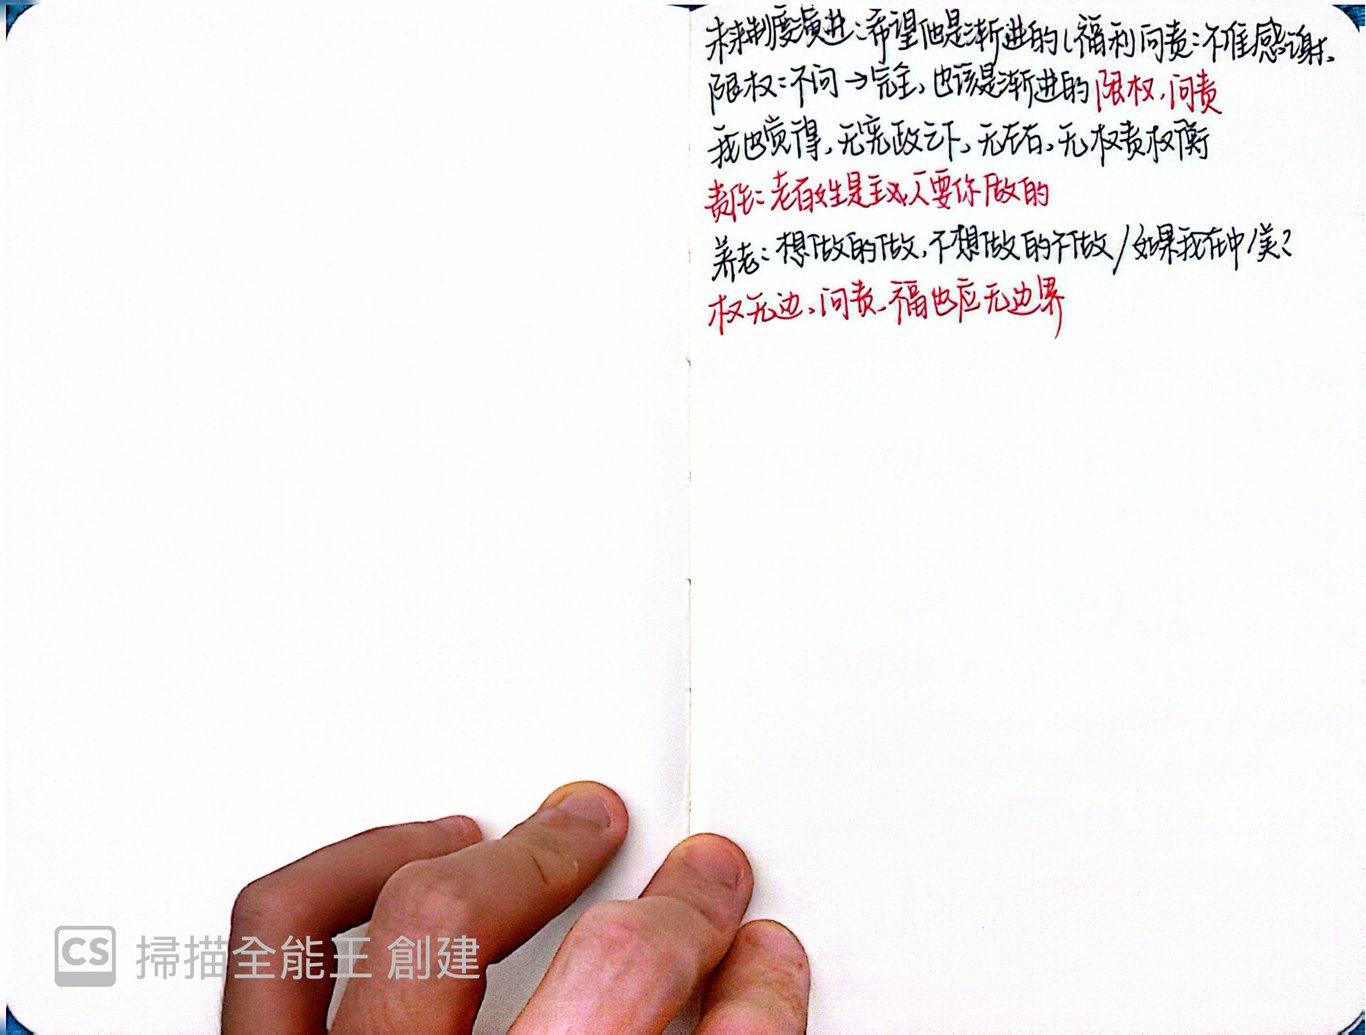 未来制度演进：希望他是渐进的（福利问责：不准感谢.
限权：不问→完全，也该是渐进的限权，问责
我也觉得，无宪政之下，无左右，无权责权衡
责任：老百姓是主义，要你做的
养老：想做的做，不想做的不做/如果我在中/美？
权无边，问责、福也应无边界
CS 掃描全能王 創建